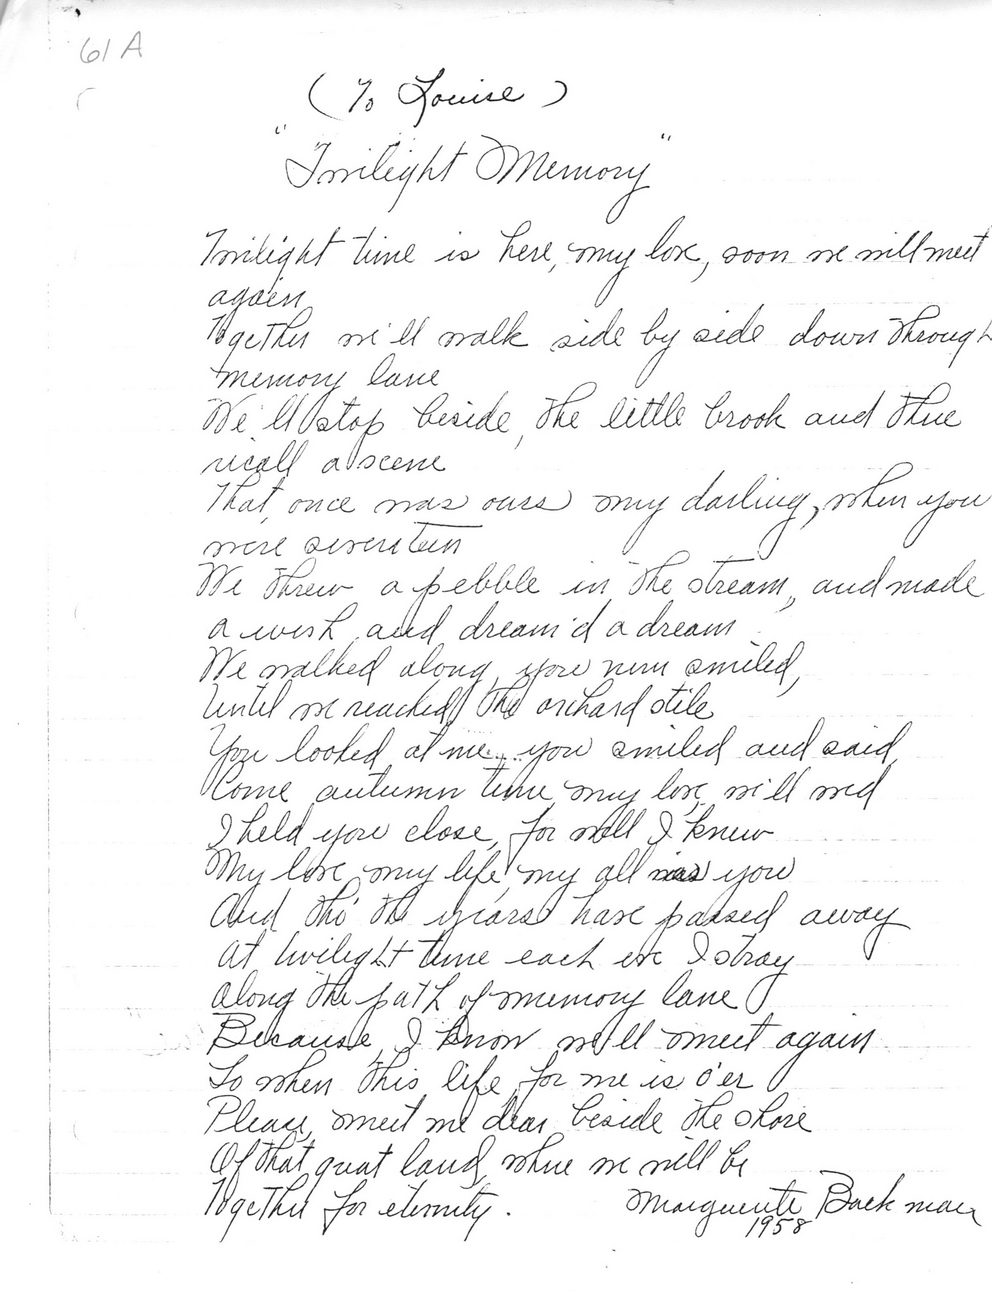 61 A
(To Louise)
"Twilight Memory"
Twilight time is here, my love, soon we will meet
again
Together we'll walk side by side down through
memory lane
We'll stop beside, the little brook and there
recall a scene
That, once was ours my darling, when you
were seventeen
We threw a pebble in the stream, and made
a wish and dream'd a dream
We walked along, you smiled,
Until we reached the orchard stile
You looked at me... you smiled and said,
Come autumn time, my love, we'll wed
I held you close, for well I knew
My love, my life, my all was you
And tho' the years have passed away
At twilight time each eve I stray
Along the path of memory lane
Because, I know we'll meet again
So when this life, for me is o'er
Please, meet me dear beside the shore
Of that great land, where we will be
Together for eternity.
Marguerite Backman
1958